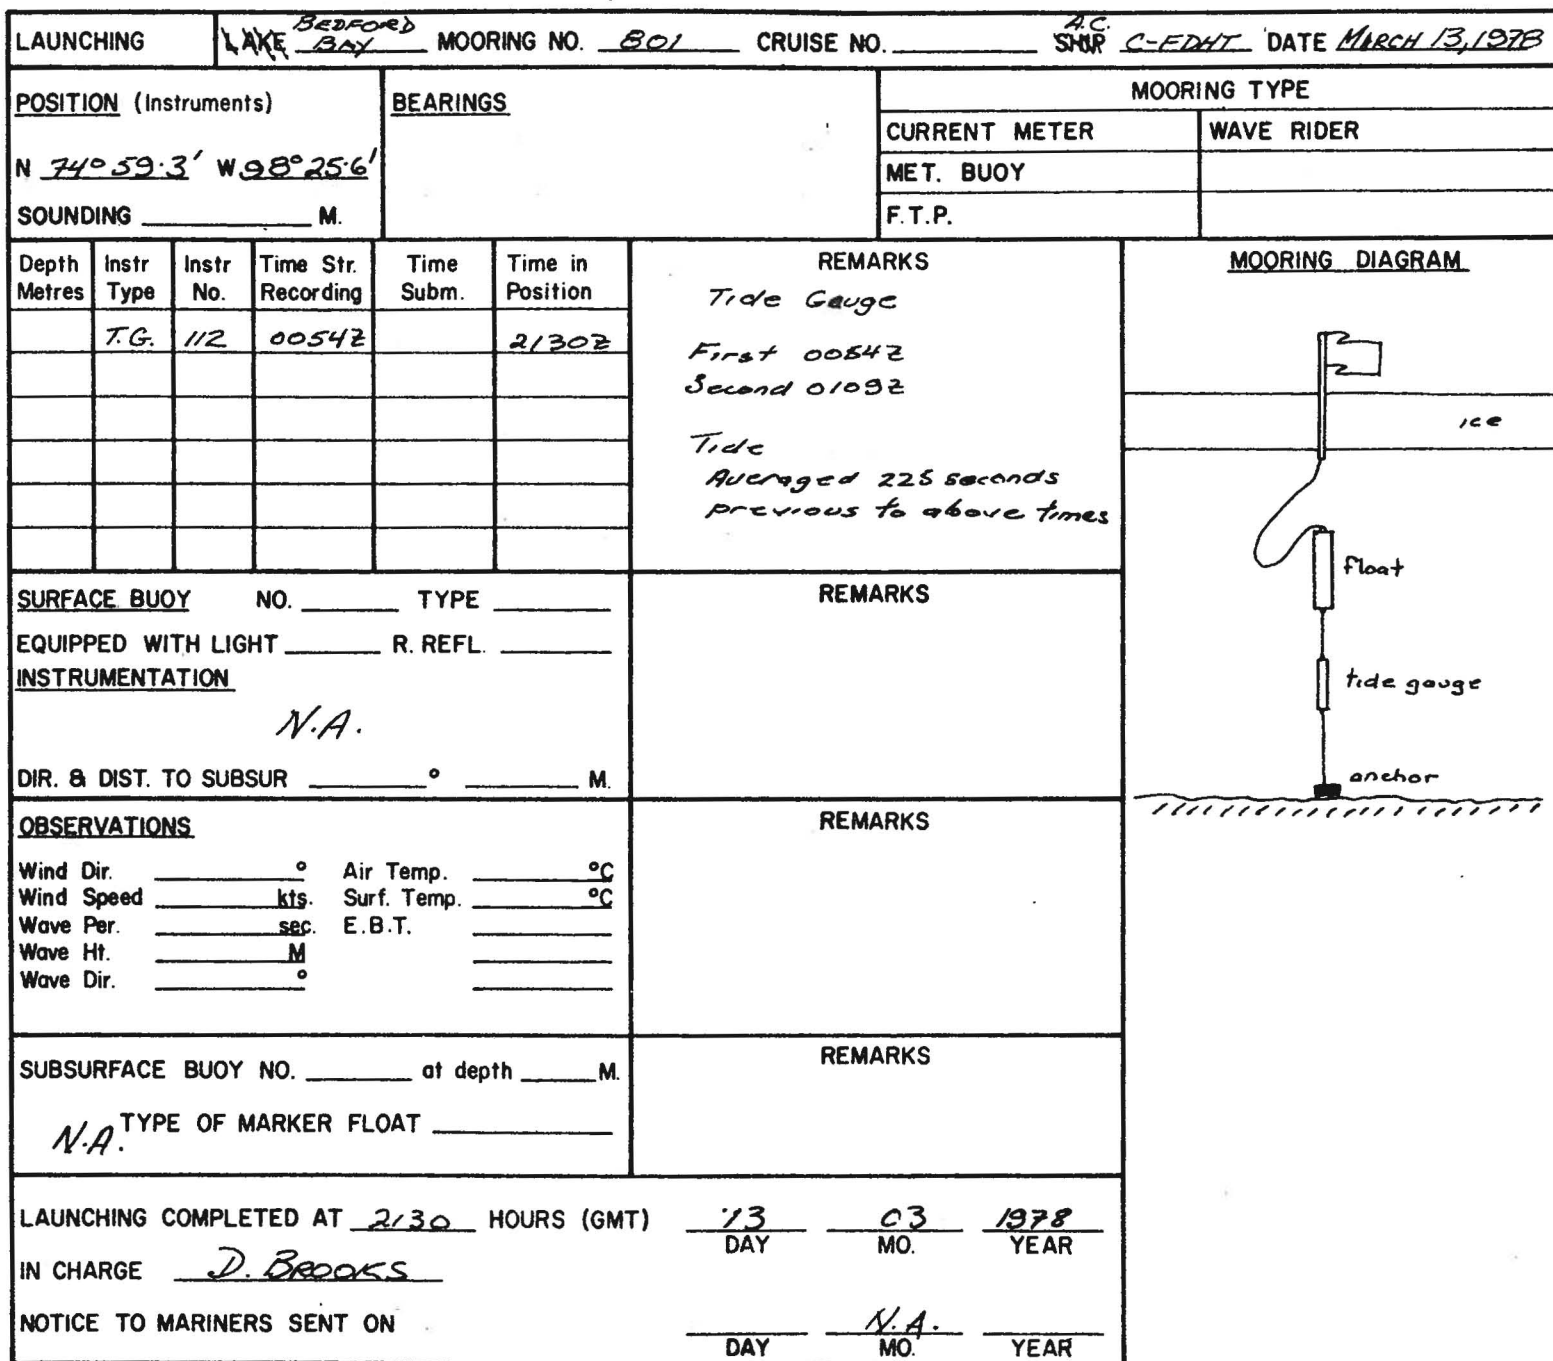 LAUNCHING LAKE BEDFORD BAY MOORING NO. 801 CRUISE NO. SHIP A.C. C-FDHT DATE MARCH 13, 1978
POSITION (Instruments)
N 74° 59.3' W 98° 25.6'
SOUNDING M.
BEARINGS
MOORING TYPE
CURRENT METER WAVE RIDER
MET. BUOY
F.T.P.
Depth Metres Instr Type Instr No. Time Str. Recording Time Subm. Time in Position
T.G. 112 0054Z 2130Z
REMARKS
Tide Gauge
First 0054Z
Second 0109Z
Tide
Averaged 225 seconds
previous to above times
MOORING DIAGRAM
ice
float
tide gauge
anchor
SURFACE BUOY NO. TYPE
EQUIPPED WITH LIGHT R. REFL.
INSTRUMENTATION
N.A.
DIR. & DIST. TO SUBSUR ° M.
REMARKS
OBSERVATIONS
Wind Dir. ° Air Temp. °C
Wind Speed kts. Surf. Temp. °C
Wave Per. sec. E.B.T.
Wave Ht. M
Wave Dir. °
REMARKS
SUBSURFACE BUOY NO. at depth M.
N.A. TYPE OF MARKER FLOAT
REMARKS
LAUNCHING COMPLETED AT 2130 HOURS (GMT) 13 03 1978
DAY MO. YEAR
IN CHARGE D. BROOKS
NOTICE TO MARINERS SENT ON N.A.
DAY MO. YEAR